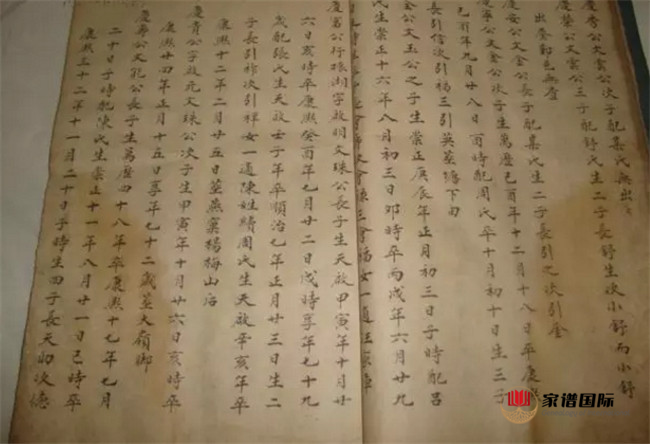 慶秀公文雲公次子配葉氏無出
慶榮公文雲公三子配舒氏生二子長舒生次小舒而小舒
出登鄣邑無查
慶安公文金公長子配葉氏生二子長引之次引金
慶寧公文金公次子生萬曆己酉年十二月十八日卒康
酉年九月廿八日酉時配周氏卒十月初十日生三子
長引信次引福三引英葬塘下田
公文玉公之子生崇正庚辰年正月初三日子時配呂
氏生崇正十六年八月初三日卯時卒丙戌年六月廿九
慶富公行珠湖字啟明文珠公長子生天啟甲寅年十月廿
六日亥時卒康熙癸酉年七月廿二日戌時享年七十九
歲配張氏生天啟壬子年卒順治乙年正月廿三日生二
子長引祚次引祥女一適陳姓續周氏生天啟辛亥年卒
康熙十二年二月廿五日葬燕窠楊梅山后
慶貴公字啟元文珠公次子生甲寅年十月廿六日亥時卒
康熙廿四年正月十五日享年七十二歲葬大嶺腳
慶壽公文孔公長子生萬曆四十八年卒康熙十七年七月
二十日子時配陳氏生崇正十一年八月廿一日巳時卒
康熙三十二年十一月二十日子時生四子長天初次德
家谱国际